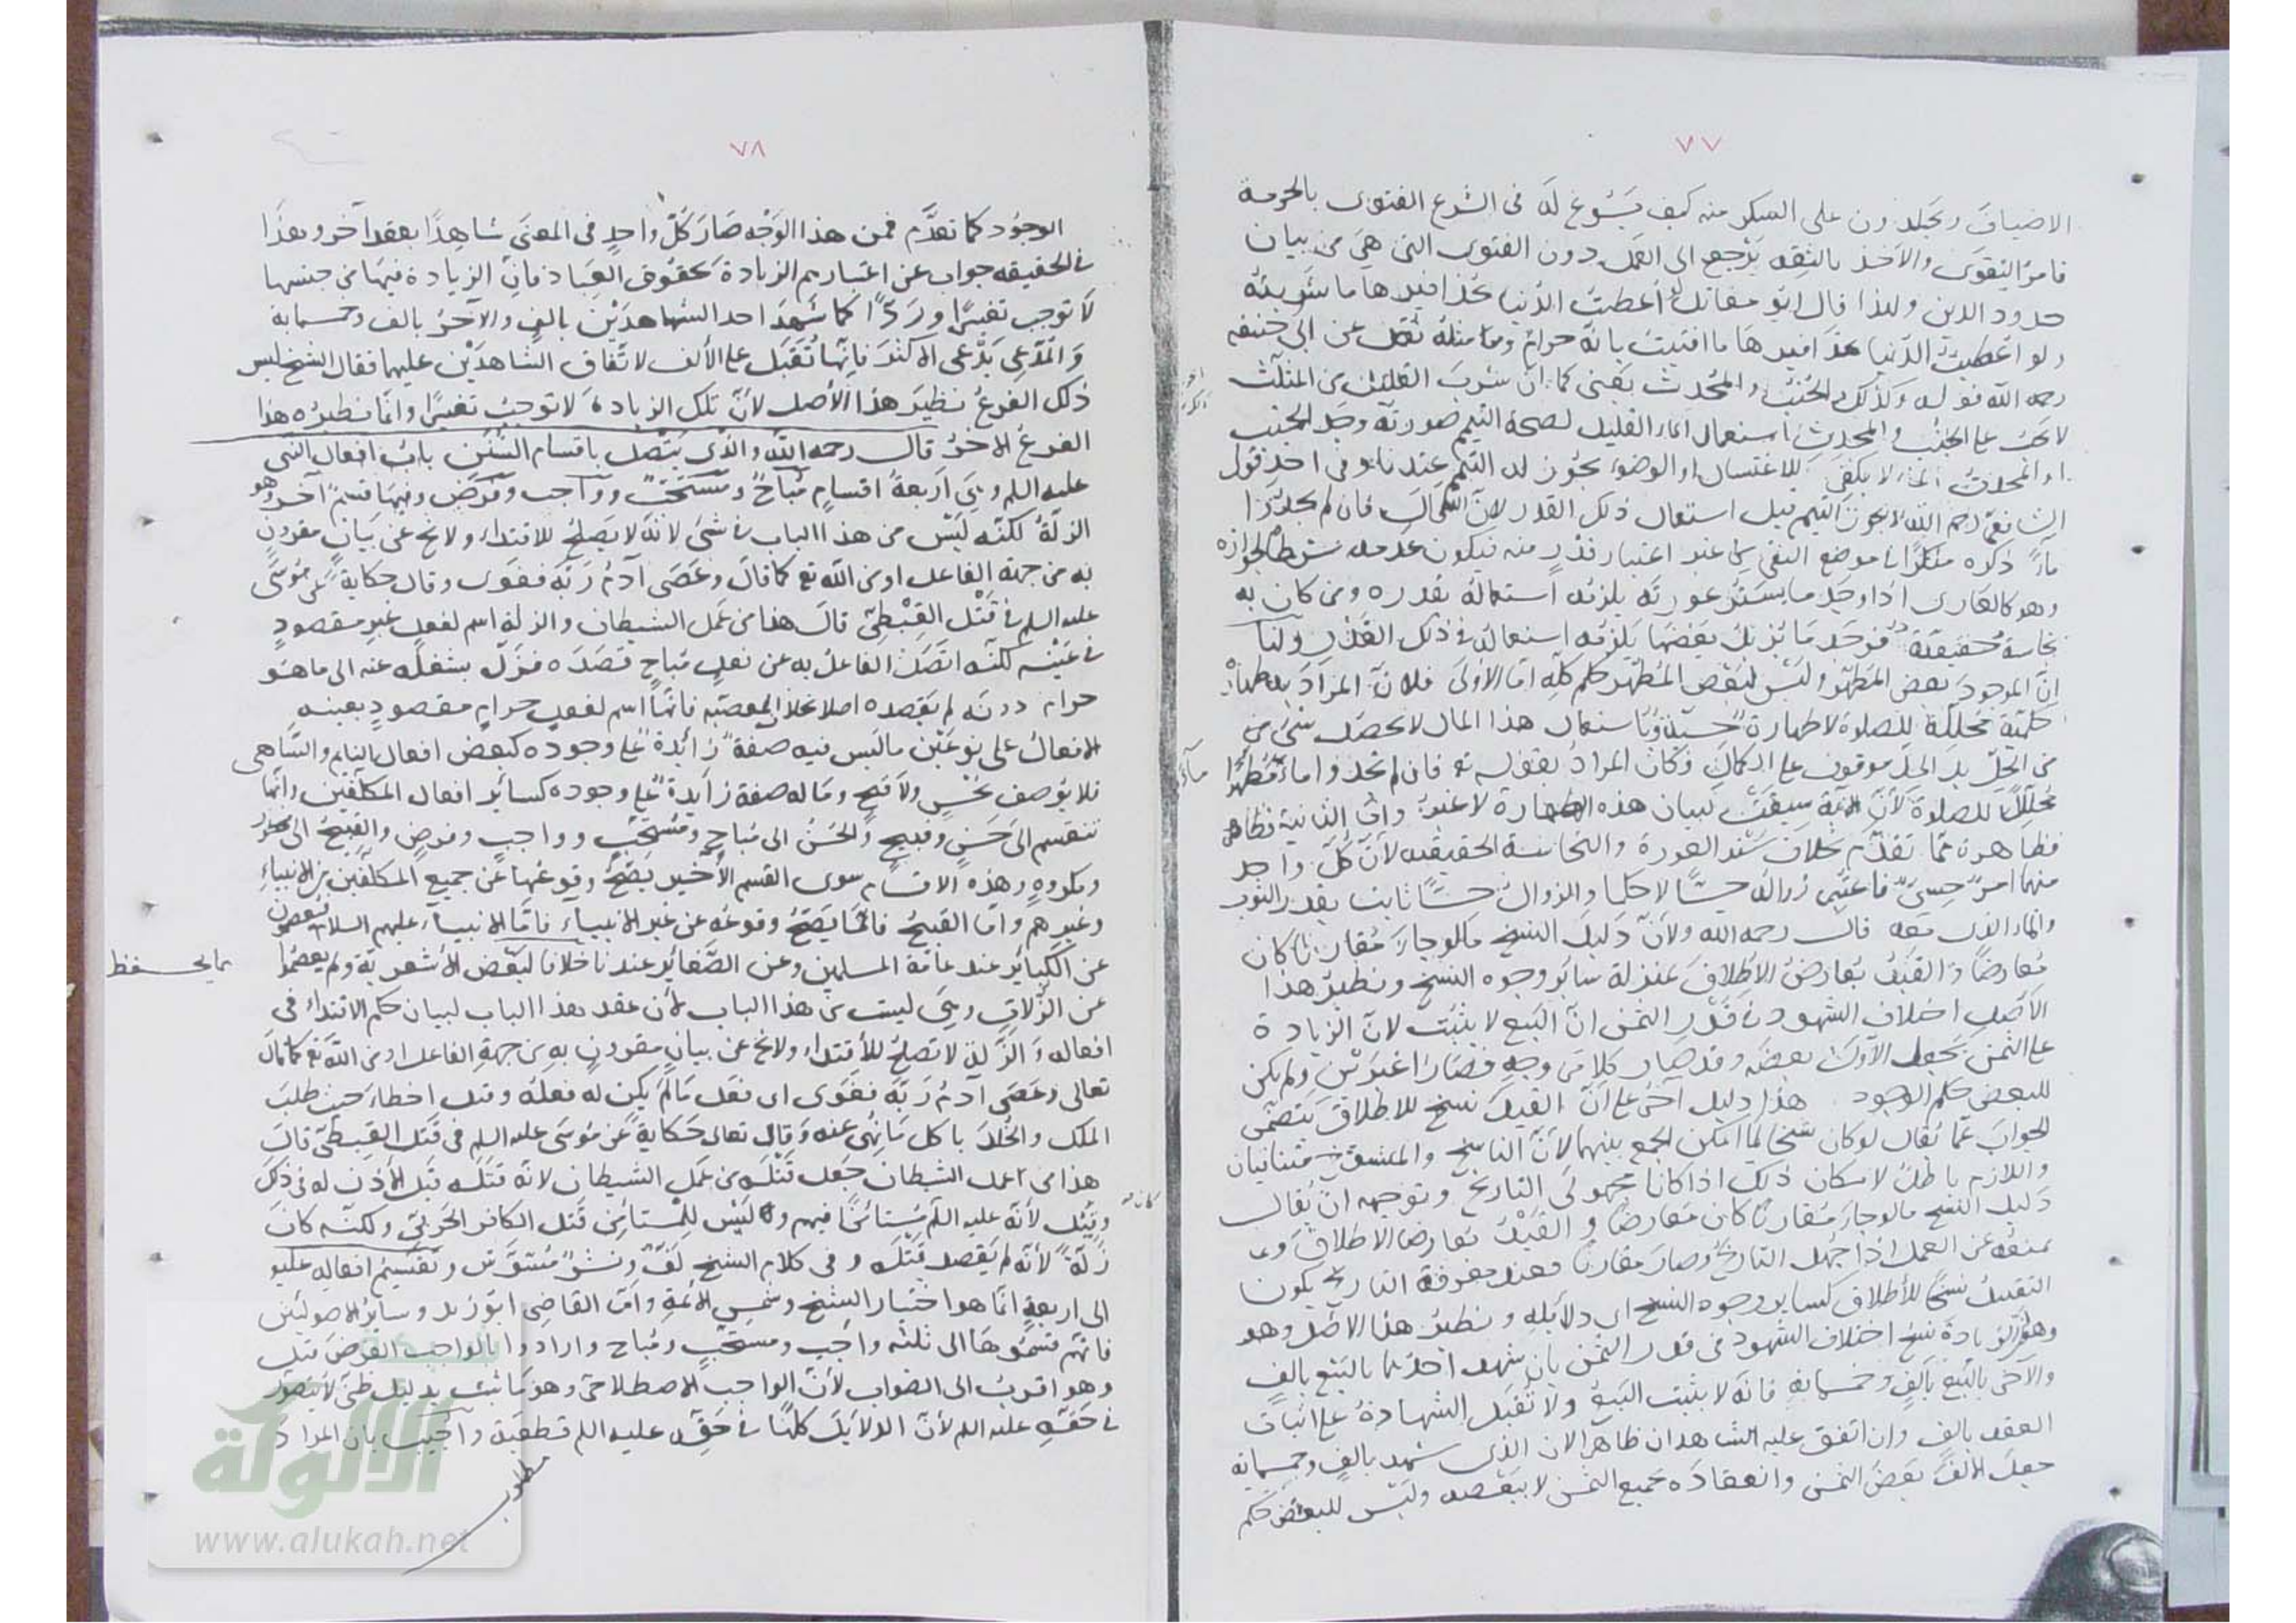 ٧٧
الاضياف ويجلدون على السكر منه كيف يسوغ له فى الشرع الفتوى بالحرمة
فامر التقوى والأخذ بالثقه يرجع الى العمل دون الفتوى التى هى من بيان
حدود الدين ولهذا قال ابو مقاتل لو أعطيت الدنيا بحذافيرها ما شربته
ولو اعطيت الدنيا بحذافيرها ما افتيت بانه حرام وما مثله نقل عن ابى حنيفه
رحمه الله قوله وكذلك الجنب والمحدث يعنى كما ان شرب القليل من المثلث
لا يحرم على الجنب والمحدث استعمال الماء القليل لصحة التيمم صورته وجد الجنب
او المحدث الماء لا يكفى للاغتسال او الوضوء يجوز له التيمم عندنا وفى احد قولى
الشافعى رحمه الله لا يجوز التيمم قبل استعمال ذلك القدر لان الله قال فان لم تجدوا
ماءً ذكره منكرًا فى موضع النفى عند اعتبار قدر منه فيكون عدمه شرطا لجوازه
وهو كالعارى اذا وجد ما يستر عورته يلزمه استعماله بقدره ومن كان به
نجاسة حقيقية فوجد ما يزيل بعضها يلزمه استعماله فى ذلك القدر ولنا
انّ الموجود بعض المطهّر وليس لبعض المطهّر حكم كلّه امّا الاولى فلانّ المراد به طهارة
حكميّة محللة للصلوة لا طهارة حسيّة وباستعمال هذا المال لا يحصل شىء من
من الحلّ بل الحلّ موقوف على الكمال وكان المراد بقوله تع فان لم تجدوا ماءً مطهّرًا ماءً
محللا للصلوة لأنّ الآية سيقت لبيان هذه الطهارة لا غير وامّا الثانية فظاهر
فظاهرة ممّا تقدّم بخلاف ستر العورة والنجاسة الحقيقيه لأنّ كلّ واحد
منهما امرٌ حسىٌ فاعتبر زواله حسًّا لا حكما والزوال حسًّا ثابت بقدر الثوب
والماء الذى معه قال رحمه الله ولأنّ دليل النسخ ما لو جاءَ مقارنا كان
مُعارضًا والقيد يُعارض الإطلاق بمنزلة سائر وجوه النسخ ونظير هذا
الأصل اختلاف الشهود فى قدر الثمن انّ البيع لا يثبت لانّ الزيادة
على الثمن يجعل الأول بعضه وقد صار كلا من وجه فصارا غيرين ولم يكن
للبعض حكم الوجود هذا دليل آخر على انّ القيد نسخ للاطلاق يتضمن
الجواب عمّا يُقال لو كان نسخا لما امكن الجمع بينهما لأنّ الناسخ والمنسوخ متنافيان
واللازم باطل لامكان ذلك اذا كانا مجهولى التاريخ وتوجيهه ان يُقال
دليل النسخ ما لو جاءَ مقارنا كان معارضا والقيد يُعارض الاطلاق
يمنعه عن العمل اذا جهل التاريخ وصار مقارنا فعند معرفة التاريخ يكون
التقييد نسخًا للأطلاق كساير وجوه النسخ اى دلائله ونظير هذا الاصل وهو
الزيادة نسخ اختلاف الشهود فى قدر الثمن بان شهد احدهما بالبيع بالفٍ
والآخر بالبيع بالفٍ وخمسمايةٍ فانه لا يثبت البيع ولا تُقبل الشهادة على اثبات
العقد بالف وان اتفق عليه الشاهدان ظاهرا لان الذى شهد بالفٍ وخمسمايه
جعل الالف بعض الثمن وانعقاده بجميع الثمن لا ببعضه وليس للبعض حكم
٧٨
الوجود كما تقدّم فمن هذا الوجه صار كلّ واحدٍ فى المعنى شاهدًا بعقد آخر وهذا
فى الحقيقه جواب عن اعتبارهم الزيادة بحقوق العباد فانّ الزيادة فيها من جنسها
لا توجب تغييرًا وردًّا كما شهد احد الشاهدين بالفٍ والآخر بالف وخمسماية
والمدّعى يدّعى الاكثر فانّها تُقبل على الألف لاتّفاق الشاهدين عليها فقال الشيخ ليس
ذلك الفرعُ نظير هذا الأصل لأنّ تلك الزيادة لا توجب تغييرًا وانّما نظيره هذا
الفرع الاخر قال رحمه الله والذى يتّصل باقسام السُّنن بابُ افعال النّبى
عليه السلم وهى اربعة اقسامٍ مباحٌ ومستحبٌّ وواجب وفرض وفيها قسمٌ آخر وهو
الزلّةُ لكنّه ليس من هذا الباب فى شىءٍ لأنّه لا يصلح للاقتداء ولا يخ عن بيان مقرون
به من جهة الفاعل او من الله تع كما قال وعصى آدم ربّه فغوى وقال حكايةً عن موسى
عليه السلم فى قتل القبطىّ قال هذا من عمل الشيطان والزلة اسم لفعل غير مقصودٍ
فى عينه لكنّه اتّصل الفاعل به عن فعل مباح قصده فزلّ بشغله عنه الى ما هو
حرام دونه لم يقصده اصلا بخلاف المعصية فانّها اسم لفعل حرام مقصودٍ بعينه
الافعالُ على نوعين ما ليس فيه صفة زائدة على وجوده كبعض افعال النايم والسّاهى
فلا يوصف بحُسنٍ ولا قبح وما له صفة زايدة على وجوده كسائر افعال المكلّفين وانّما
تنقسم الى حسن وقبيح والحسنُ الى مباحٍ ومستحبٍّ وواجب وفرضٍ والقبيحُ الى محظور
ومكروهٍ وهذه الاقسام سوى القسم الأخير يصحُّ وقوعُها عن جميع المكلّفين من الانبياءِ
وغيرهم وامّا القبيح فانّما يصحُّ وقوعُه عن غير الانبياء فامّا الانبياء عليهم السلام فيعصمون
عن الكبائر عند عامة المسلمين وعن الصّغائر عندنا خلافا لبعض الأشعريّة ولم يعصموا مما يحفظ
عن الزّلاتِ وهى ليست من هذا الباب لأن عقد هذا الباب لبيان حكم الاقتداء فى
افعاله والزّلة لا تصلحُ للأقتداء ولا يخ عن بيان مقرون به من جهة الفاعل او من الله تع كما قال
تعالى وعصى آدم ربّه فغوى اى فعل ما لم يكن له فعله وقيل اخطأ حيث طلب
الملك والخلد باكل ما نُهى عنه وقال تعالى حكاية عن موسى عليه السلم فى قتل القبطىّ قال
هذا من عمل الشيطان جعل قتله من عمل الشيطان لانه قتله قبل الاذن له فى ذلك
وقيل لأنّه عليه السلم كان مستأمنًا فيهم وليس للمستأمن قتل الكافر الحربىّ ولكنّه كان
زلّةً لأنّه لم يقصد قتله وفى كلام الشيخ لفّ ونشرٌ مشوّش وتقسيم افعاله عليه
الى اربعةٍ انّما هو اختيار الشيخ وشمس الأئمّة وامّا القاضى ابو زيد وسائر الاصوليّين
فانّهم قسّموها الى ثلثه واجبٍ ومستحبٍّ ومباحٍ وارادوا بالواجب الفرض قيل
وهو اقرب الى الصّواب لأنّ الواجب الاصطلاحىّ وهو ما ثبت بدليل ظنّىّ لا يتصوّر
فى حقّه عليه السلم لأنّ الدلايل كلّها فى حقّه عليه السلم قطعية واجيب بان المراد
مطلوب
الألوكة
www.alukah.net